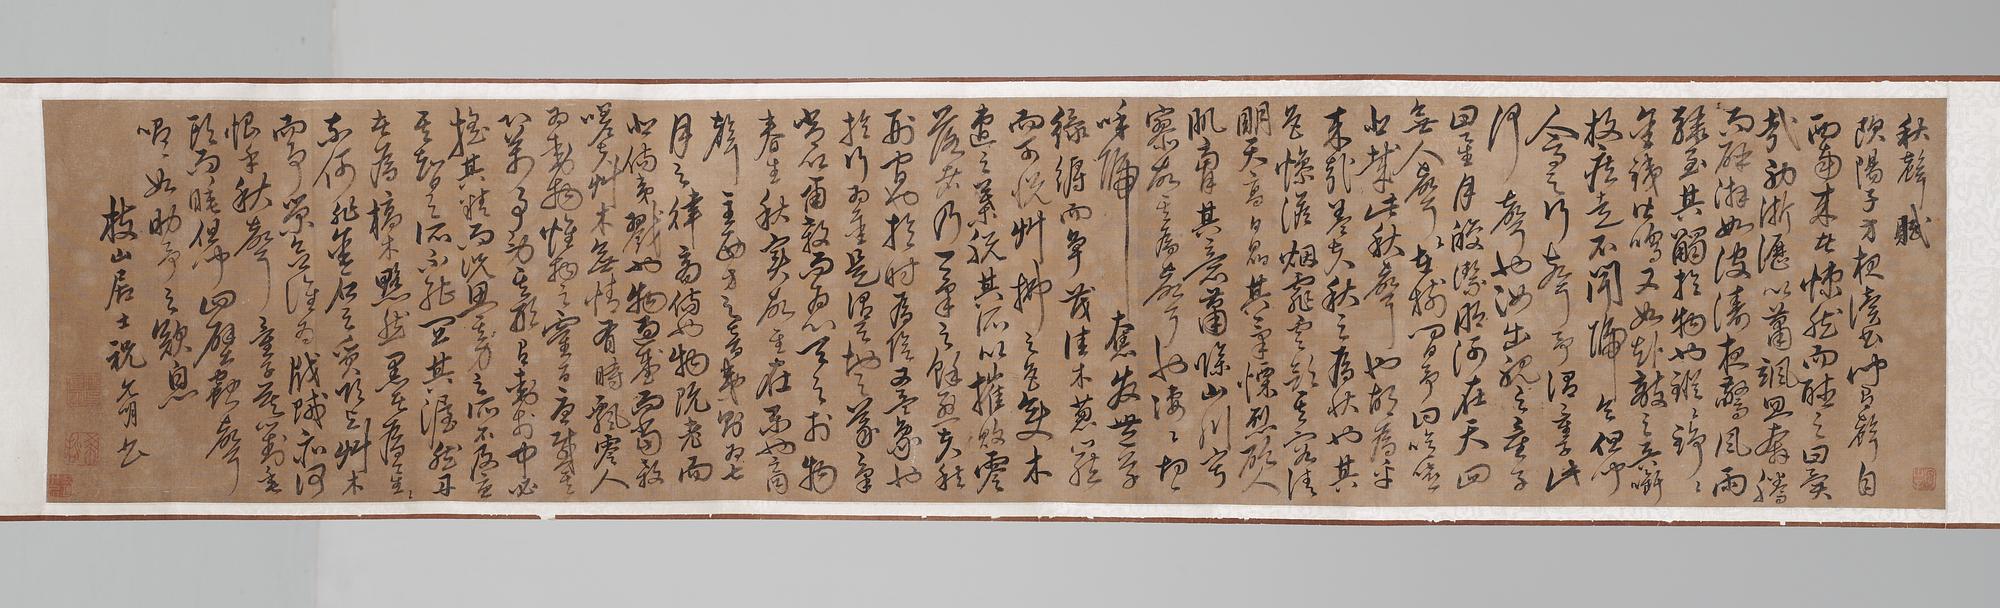 秋聲賦
歐陽子方夜讀書聞有聲自
西南來者悚然而聽之曰異
哉初淅瀝以蕭颯忽奔騰
而砰湃如波濤夜驚風雨
驟至其觸於物也鏦鏦錚錚
金鐵皆鳴又如赴敵之兵銜
枚疾走不聞號令但聞
人馬之行聲予謂童子此
何聲也汝出視之童子
曰星月皎潔明河在天四
無人聲聲在樹間予曰噫嘻
悲哉此秋聲也胡為乎
來哉蓋夫秋之為狀也其
色慘澹烟霏雲斂其容清
明天高日晶其氣慄烈砭人
肌膚其意蕭條山川寂
寥故其為聲也淒淒切切
呼號奮發豐草
綠縟而爭茂佳木蔥蘢
而可悅草拂之而色變木
遭之葉脫其所以摧敗零
落者乃一氣之餘烈夫秋
刑官也於時為陰又兵象也
於行為金是謂天地之義氣
常以肅殺而為心天之於物
春生秋實故其在樂也商
聲主西方之音夷則為七
月之律商傷也物既老而
悲傷夷戮也物過盛而當殺
嗟夫草木無情有時飄零人
為動物惟物之靈百憂感其
心萬事勞其形有動於中必
搖其精而況思其力之所不及憂
其智之所不能宜其渥然丹
者為槁木黟然黑者為星星
奈何非金石之質欲與草木
而爭榮念誰為戕賊亦何
恨乎秋聲童子莫對垂
頭而睡但聞四壁蟲聲
唧唧如助予之歎息
枝山居士祝允明書